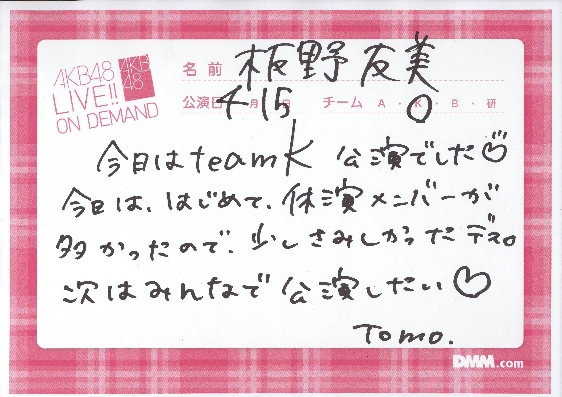 AKB48
LIVE!!
ON DEMAND
AKB
48
名前 板野友美
公演日 4月15日 チーム A・K・B・研
今日はteamK 公演でした♡
今日は、はじめて、休演メンバーが
多かったので、少しさみしかったデス。
次はみんなで公演したい♡
Tomo.
DMM.com